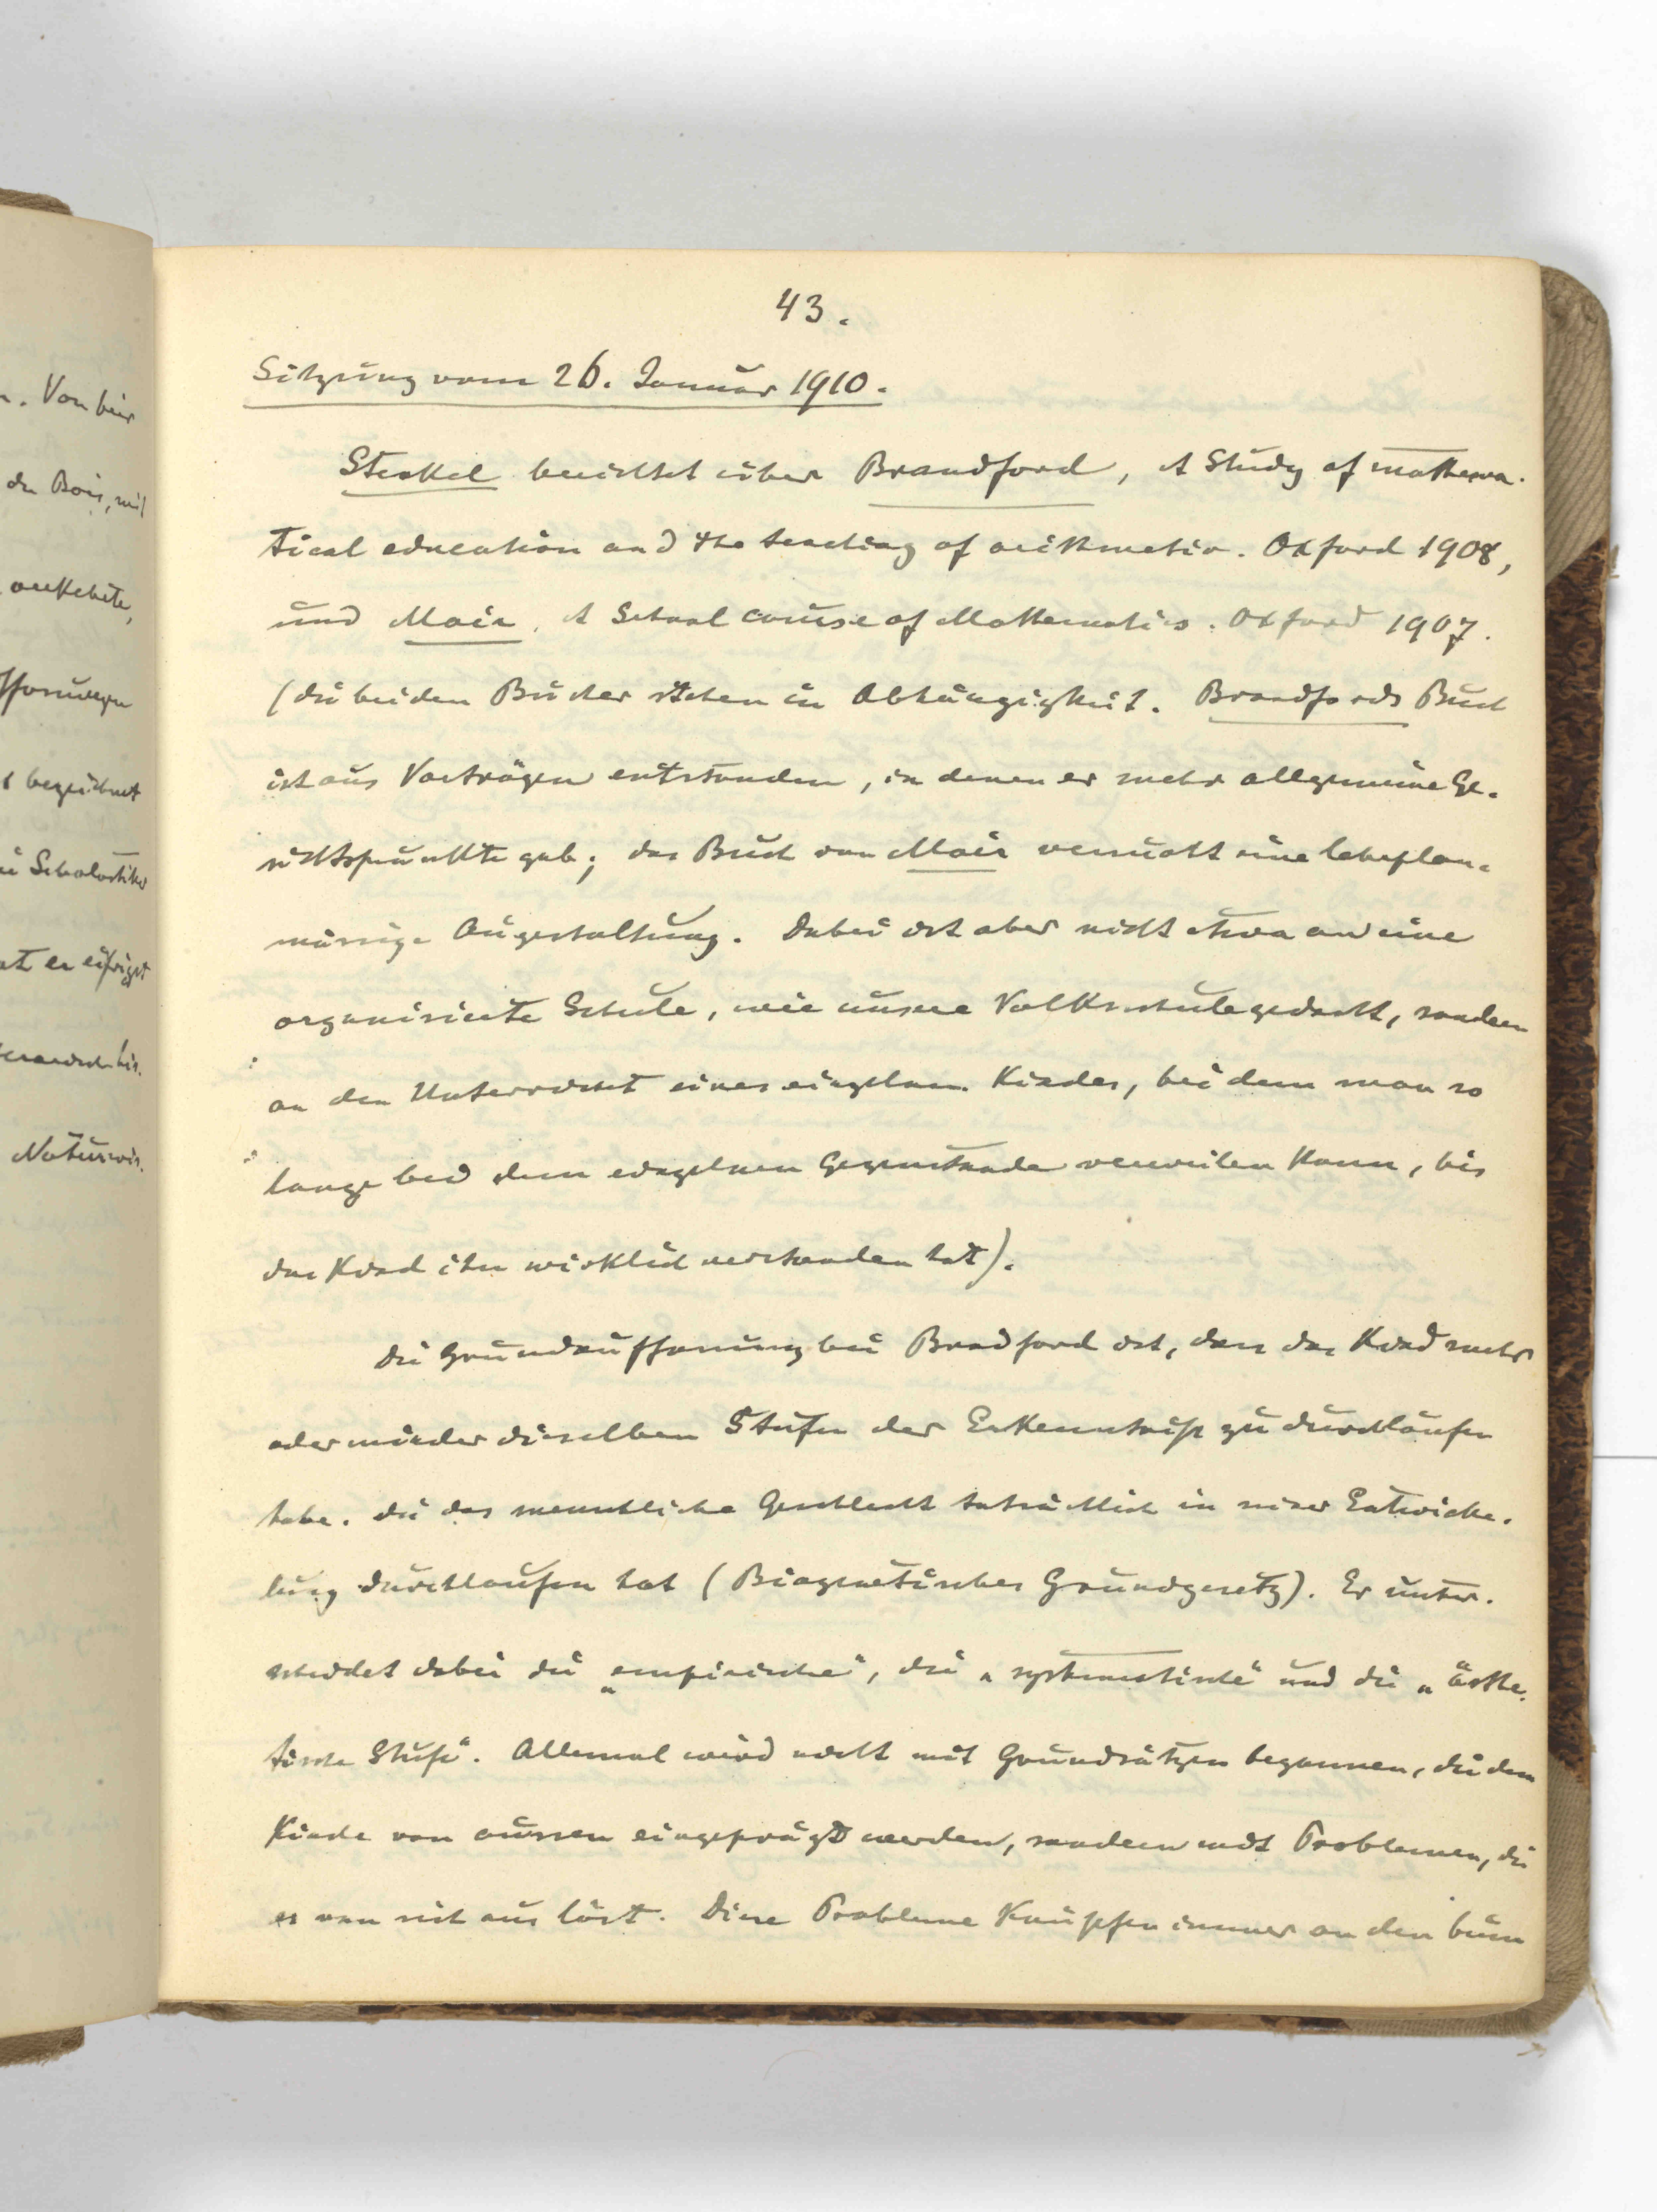 43.
Sitzung vom 26. Januar 1910.
Steckel berichtet über Brandford, A Study of mathema-
tical education and the teaching of arithmetic. Oxford 1908,
und Mair, A School course of Mathematics. Oxford 1907.
(Die beiden Bücher stehen in Abhängigkeit. Brandfords Buch
ist aus Vorträgen entstanden, in denen er mehr allgemeine Ge-
sichtspunkte gab; das Buch von Mair versucht eine lehrplan-
mässige Ausgestaltung. Dabei ist aber nicht etwa an eine
organisierte Schule, wie unsere Volksschule gedacht, sondern
an den Unterricht eines einzelnen Kindes, bei dem man so
lange bei dem einzelnen Gegenstande verweilen kann, bis
das Kind ihn wirklich verstanden hat).
Die Grundauffassung bei Bradford ist, dass das Kind mehr
oder minder dieselben Stufen der Erkenntniss zu durchlaufen
habe, die das menschliche Geschlecht tatsächlich in seiner Entwicke-
lung durchlaufen hat (Biogenetisches Grundgesetz). Er unter-
scheidet dabei die „empirische“, die „systematische“ und die „ästhe-
tische Stufe“. Allemal wird nicht mit Grundsätzen begonnen, die dem
Kinde von aussen eingeprägt werden, sondern mit Problemen, die
es von sich aus löst. Diese Probleme knüpfen immer an den beim
. Von hier
du Bois, mit
bezeichnet
Scholastiker
er eifrigst
Naturwis-